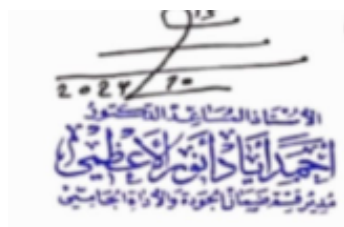 2024 10
الأستاذ المساعد الدكتور
أحمد إياد أنور الأعظمي
مدير قسم ضمان الجودة والأداء الجامعي